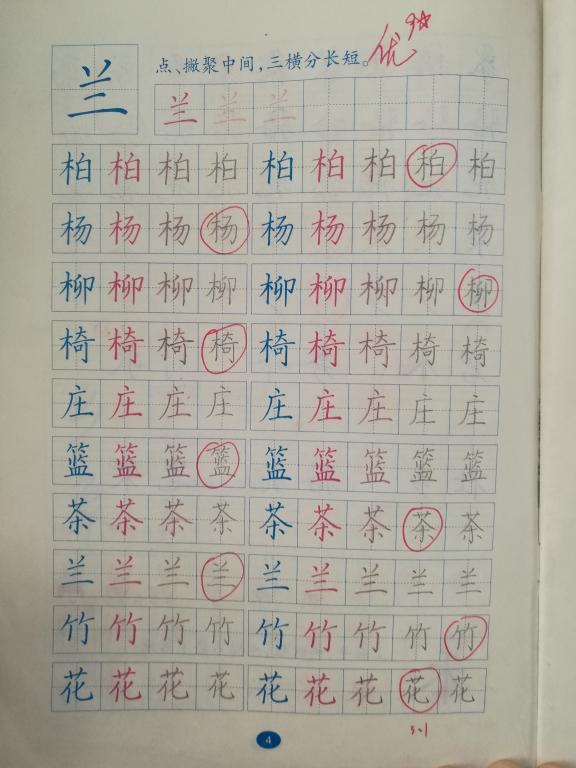 优 9☆
兰 点、撇聚中间，三横分长短。
兰 兰 兰
柏 柏 柏 柏 柏 柏 柏 柏 柏
杨 杨 杨 杨 杨 杨 杨 杨 杨
柳 柳 柳 柳 柳 柳 柳 柳 柳
椅 椅 椅 椅 椅 椅 椅 椅 椅
庄 庄 庄 庄 庄 庄 庄 庄 庄
篮 篮 篮 篮 篮 篮 篮 篮 篮
茶 茶 茶 茶 茶 茶 茶 茶 茶
兰 兰 兰 兰 兰 兰 兰 兰 兰
竹 竹 竹 竹 竹 竹 竹 竹 竹
花 花 花 花 花 花 花 花 花
3.1
4